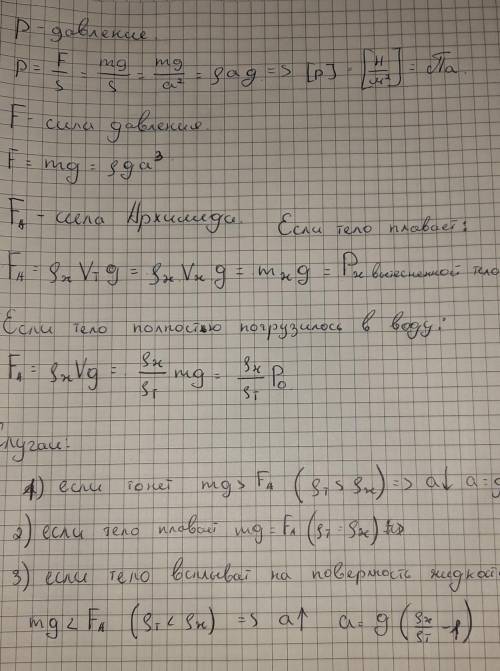 P - давление.
P = F/S = mg/S = mg/a² = ρag => [P] - [Н/м²] = Па
F - сила давления.
F = mg = ρga³
F_A - сила Архимеда. Если тело плавает:
F_A = ρ_ж V_т g = ρ_ж V_ж g = m_ж g = P_ж вытесненной тело
Если тело полностью погрузилось в воду:
F_A = ρ_ж Vg = ρ_ж/ρ_т mg = ρ_ж/ρ_т P₀
Случаи:
1) если тонет mg > F_A (ρ_т > ρ_ж) => a↓ a = g
2) если тело плавает mg = F_A (ρ_т = ρ_ж)
3) если тело всплывает на поверхность жидкост
mg < F_A (ρ_т < ρ_ж) => a↑ a = g (ρ_ж/ρ_т - 1)